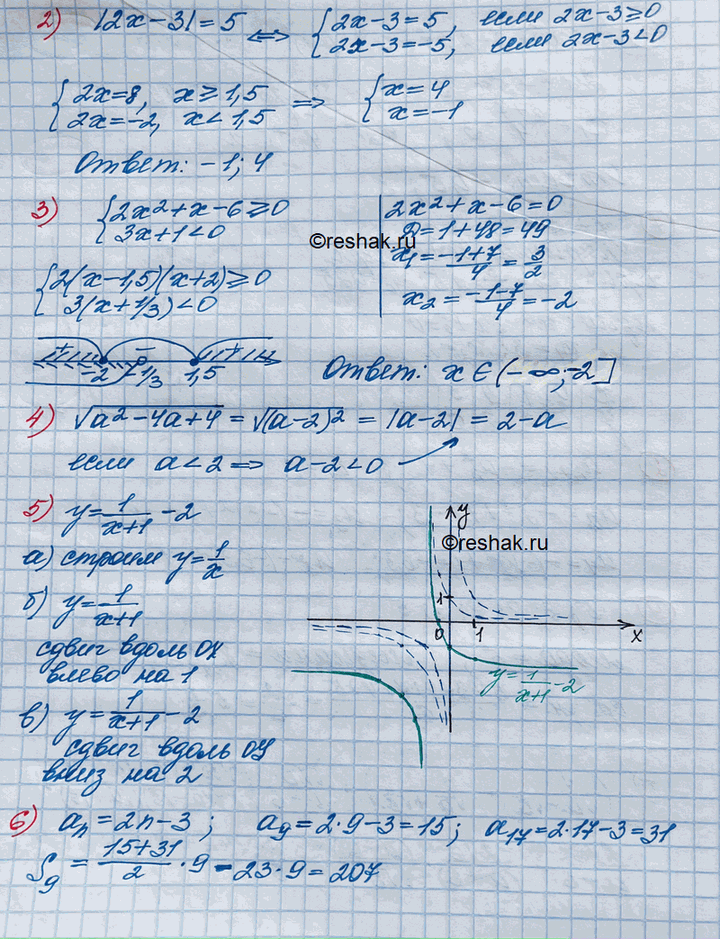 2) |2x-3|=5 ⇔ {2x-3=5, если 2x-3≥0
2x-3=-5, если 2x-3<0
{2x=8, x≥1,5 ⇒ {x=4
2x=-2, x<1,5 x=-1
Ответ: -1; 4
3) {2x²+x-6≥0
3x+1<0
{2(x-1,5)(x+2)≥0
3(x+1/3)<0
2x²+x-6=0
D=1+48=49
x₁=(-1+7)/4=3/2
x₂=(-1-7)/4=-2
©reshak.ru
+ - +
-2 -1/3 1,5
Ответ: x∈(-∞;-2]
4) √(a²-4a+4) = √(a-2)² = |a-2| = 2-a
если a<2 ⇒ a-2<0
5) y=1/(x+1) -2
а) строим y=1/x
б) y=1/(x+1)
сдвиг вдоль OX
влево на 1
в) y=1/(x+1) -2
сдвиг вдоль OY
вниз на 2
y
©reshak.ru
1
0 1 x
y=1/(x+1) -2
6) aₙ=2n-3; a₉=2·9-3=15; a₁₇=2·17-3=31
S₉ = (15+31)/2 ·9=23·9=207